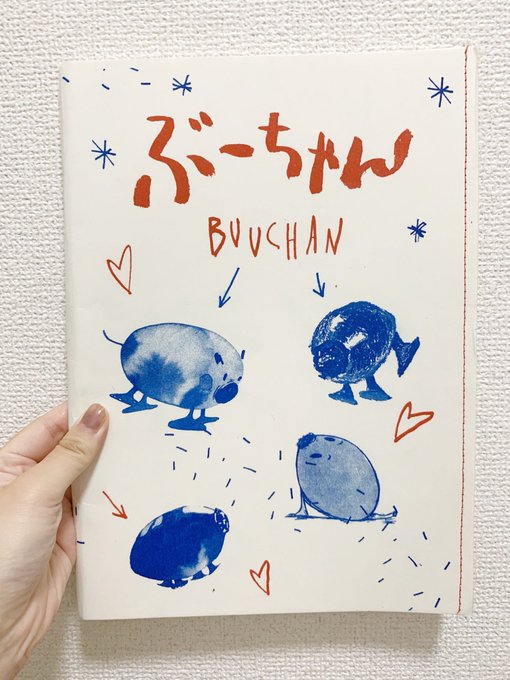 ぶーちゃん
BUUCHAN